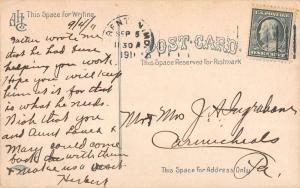 AHC This Space for Writing
9/4/11
Walter wrote me
that he had been
helping you work.
Hope you will keep
him at it for that
is what he needs.
Wish that you
and Aunt Laura &
Mary could come
back with them
& make us a visit
Herbert
SEP 5
30 A
191
POST-CARD
This Space Reserved for Postmark
Mr & Mrs J. A. Ingraham
Carmichaels
Pa.
This Space for Address Only